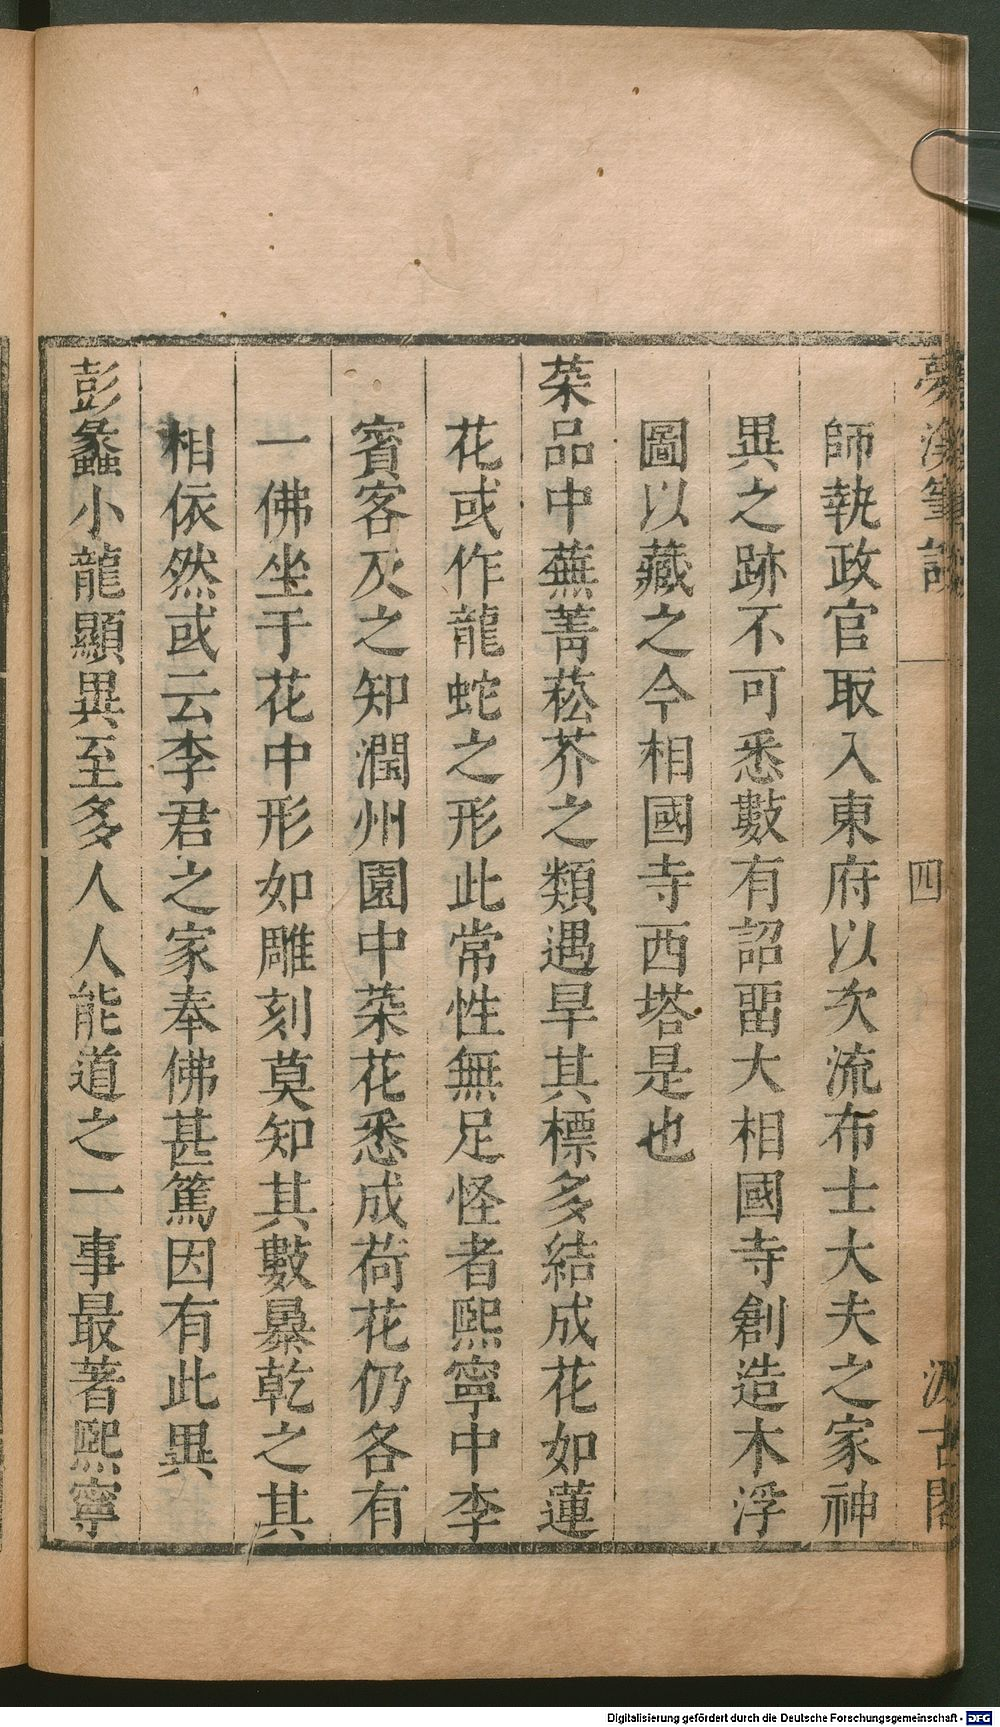 夢溪筆談 四 汲古閣
師執政官取入東府以次流布士大夫之家神
異之跡不可悉數有詔畱大相國寺創造木浮
圖以藏之今相國寺西塔是也
菜品中蕪菁菘芥之類遇旱其標多結成花如蓮
花或作龍蛇之形此常性無足怪者熙寧中李
賓客及之知潤州園中菜花悉成荷花仍各有
一佛坐于花中形如雕刻莫知其數暴乾之其
相依然或云李君之家奉佛甚篤因有此異
彭蠡小龍顯異至多人人能道之一事最著熙寧
Digitalisierung gefördert durch die Deutsche Forschungsgemeinschaft - DFG